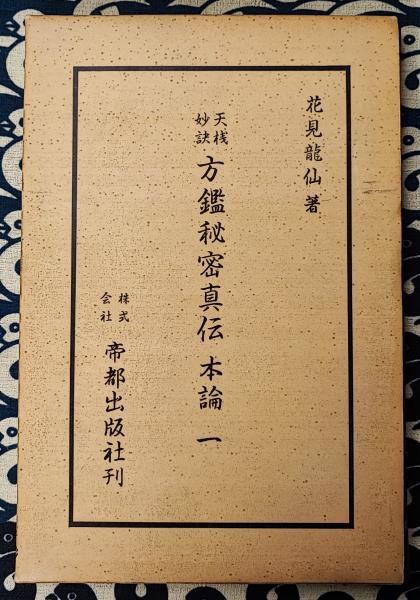 花見龍仙 著
天桟妙訣 方鑑秘密真伝 本論 一
株式会社 帝都出版社刊